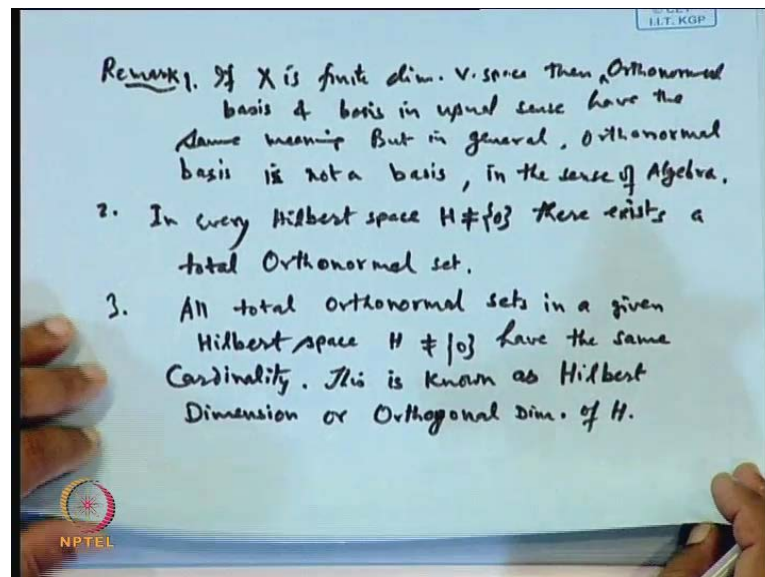 I.I.T. KGP
Remark 1. If X is finite dim. V. space then, Orthonormal
basis & basis in usual sense have the
same meaning But in general, orthonormal
basis is not a basis, in the sense of Algebra.
2. In every Hilbert space H ≠ {0} there exists a
total Orthonormal set.
3. All total orthonormal sets in a given
Hilbert space H ≠ {0} have the same
Cardinality. This is known as Hilbert
Dimension or Orthogonal Dim. of H.
NPTEL